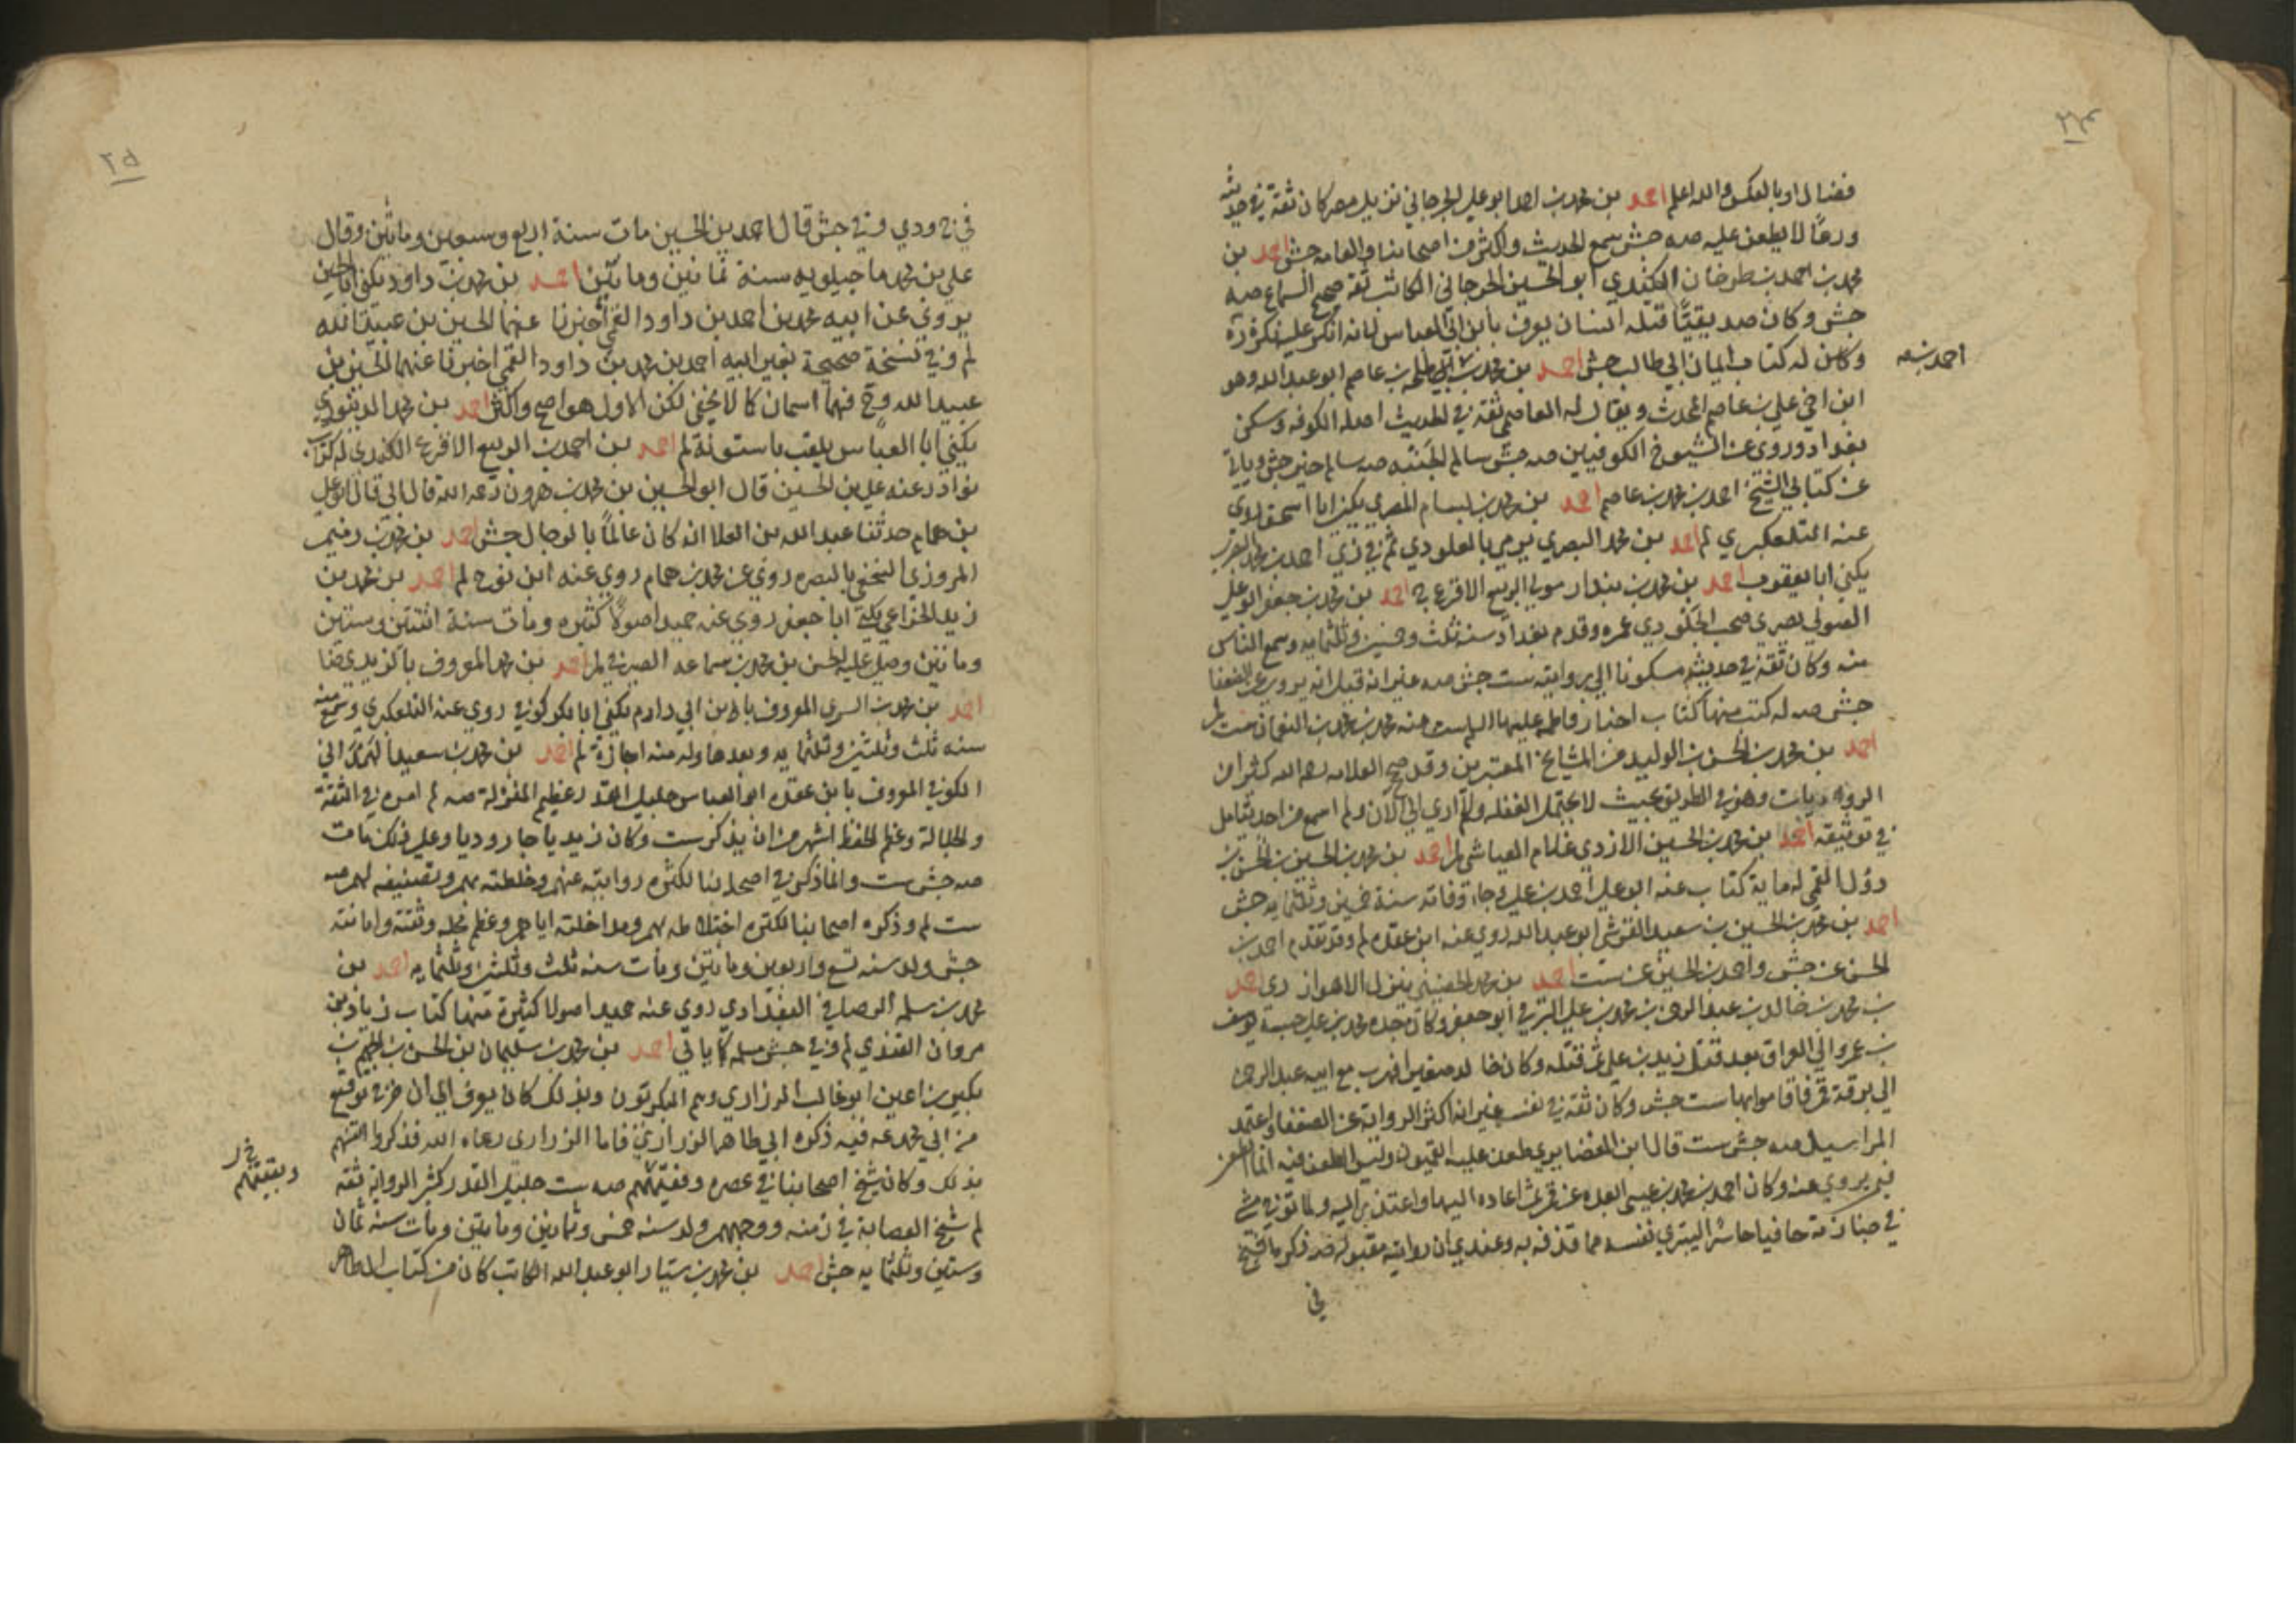 فضالا او بالعكس والله اعلم احمد بن محمد بن احمد ابو علي الجرجاني نزيل مصر كان ثقة في حديثه
ورعًا لا يطعن عليه صه جش سمع الحديث واكثر من اصحابنا والعامه جش احمد بن
محمد بن احمد بن طرخان الكندي ابو الحسين الجرجاني الكاتب ثقة صحيح السماع صه
جش وكان صديقنا قتله انسان يعرف بابن ابي العباس لانه انكر عليه نكرة
وكان له كتاب ايمان ابي طالب جش احمد بن محمد بن احمد بن طلحه بن عاصم ابو عبد الله وهو
احمد نسخه
ابن اخي علي بن عاصم المحدث ويقال له العاصمي ثقة في الحديث اصله الكوفه وسكن
بغداد وروى عن الشيوخ الكوفيين صه جش سالم الجنبه صه سالم خير جش وياتي
عن كتابي الشيخ احمد بن محمد بن عاصم احمد بن محمد بن بسام المصري يكنى ابا اسحق روى
عنه التلعكبري لم احمد بن محمد البصري يرمي بالغلو دي ثم في ري احمد بن محمد
يكنى ابا يعقوب احمد بن محمد بن بندار مولى الربيع الاقرع ج احمد بن محمد بن جعفر ابو علي
الصولي بصري صحب الجلودي عمره وقدم بغداد سنه ثلث وخمسين وثلثمايه وسمع الناس
منه وكان ثقة في حديثه مسكونا الى روايته ست جش صه غير انه قيل انه يروي عن الضعفا
جش صه له كتب منها كتاب اخبار فاطمه عليها السلم ست عنه محمد بن محمد بن النعمان ست لم
احمد بن محمد بن الحسن بن الوليد من المشايخ المعتبرين وقد صحح العلامه رحمه الله كثيرا من
الروايات وهو في الطريق بحيث لا يحتمل الغفله ولم ار الى الان ولم اسمع من احد يتامل
في توثيقه احمد بن محمد بن الحسين الازدي غلام العياشي لم احمد بن محمد بن الحسين بن الحسن بن
دؤل القمي له مايه كتاب عنه ابو علي احمد بن علي وجاء وفاته سنة خمسين وثلثمايه جش
احمد بن محمد بن الحسين بن سعيد القرشي ابو عبد الله روى عنه ابن عقده لم وقد تقدم احمد بن
الحسن عن جش واحمد بن الحسين عن ست احمد بن محمد الحضيني ينزل الاهواز دي احمد
بن محمد بن خالد بن عبد الرحمن بن محمد بن علي البرقي ابو جعفر وكان جده محمد بن علي حبسه يوسف
بن عمر والي العراق بعد قتل زيد بن علي ثم قتله وكان خالد صغير افهرب مع ابيه عبد الرحمن
الى برقة قم فاقاموا بها ست جش وكان ثقة في نفسه غير انه اكثر الرواية عن الضعفا واعتمد
المراسيل صه جش ست قال ابن الغضايري طعن عليه القميون وليس الطعن فيه انما الطعن
فيمن يروي عنه وكان احمد بن محمد بن عيسى ابعده عن قم ثم اعاده اليها واعتذر اليه ولما توفي مشى
في جنازته حافيا حاسرا ليبري نفسه مما قذفه به وعندي ان روايته مقبوله صه ذكر تاريخ
في
في ج ودي وفي جش قال احمد بن الحسين مات سنة اربع وسبعين ومائتين وقال
علي بن محمد ماجيلويه سنة ثمانين ومائتين احمد بن محمد بن داود يكنى ابا الحسين
يروي عن ابيه محمد بن احمد بن داود القمي اخبرنا عنهما الحسين بن عبيد الله
لم وفي نسخة صحيحة بغير ابيه احمد بن محمد بن داود القمي اخبرنا عنهما الحسين بن
عبيد الله وح فهما اسمان كما لا يخفى لكن الاول هو اصح واكثر احمد بن محمد الدينوري
يكنى ابا العباس يلقب باستونة لم احمد بن احمد بن الربيع الاقرع الكندي له كتاب
نوادر عنه علي بن الحسين قال ابو الحسين بن محمد بن هرون رحمه الله قال ابي قال ابو علي
بن همام حدثنا عبد الله بن العلا انه كان عالمًا بالرجال جش احمد بن محمد بن رميم
المروزي النخعي بالبصره روى عن محمد بن همام روى عنه ابن نوح لم احمد بن محمد بن
زيد الخزاعي يكنى ابا جعفر روى عنه حميد اصولًا كثيره ومات سنة اثنتين وستين
ومائتين وصلى عليه الحسن بن محمد بن سماعه الصيرفي لم احمد بن محمد المعروف بالزيدي ضا
احمد بن محمد بن السري المعروف بابن ابي دارم يكنى ابا بكر كوفي روى عنه التلعكبري وسمع منه
سنه ثلث وثلثين وثلثمايه وبعدها وله منه اجازة لم احمد بن محمد بن سعيد الهمداني
الكوفي المعروف بابن عقده ابو العباس جليل القدر عظيم المنزلة صه لم امره في الثقة
والجلالة وعظم الحفظ اشهر من ان يذكر ست وكان زيديا جاروديا وعلى ذلك مات
صه جش ست وانما ذكره في اصحابنا لكثره روايته عنهم وخلطته بهم وتصنيفه لهم صه
ست لم وذكره اصحابنا لكثره اختلاطه بهم ومداخلته اياهم وعظم محله وثقته وامانته
جش ولد سنه تسع واربعين ومايتين ومات سنه ثلث وثلثين وثلثمايه احمد بن
محمد بن سلمه الرصافي البغدادي روى عنه حميد اصولا كثيرة منها كتاب زياد بن
مروان القندي لم وفي جش مسلمه كما ياتي احمد بن محمد بن سليمان بن الحسن بن الجهم بن
بكير بن اعين ابو غالب الزراري وهم البكريون وبذلك كان يعرف الى ان خرج توقيع
من ابي محمد عه فيه ذكره ابي طاهر الزراري فاما الزراري رعاه الله فذكروا انفسهم
بذلك وكان شيخ اصحابنا في عصره وفقيههم صه ست جليل القدر كثير الرواية ثقه
لم شيخ العصابة في زمنه ووجههم ولد سنه خمس وثمانين ومايتين ومات سنه ثمان
وستين وثلثمايه جش احمد بن محمد بن سيار ابو عبد الله الكاتب كان من كتاب ال طاهر